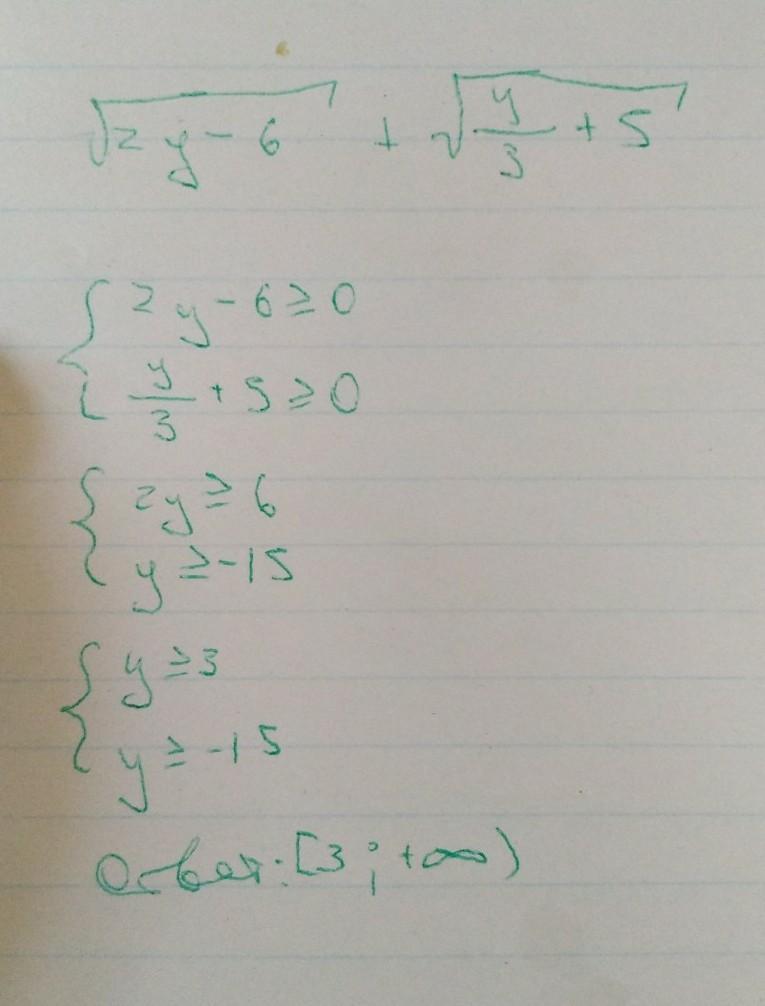 √(2y - 6) + √(y/3 + 5)
{ 2y - 6 ≥ 0
{ y/3 + 5 ≥ 0
{ 2y ≥ 6
{ y ≥ -15
{ y ≥ 3
{ y ≥ -15
Ответ: [3; +∞)